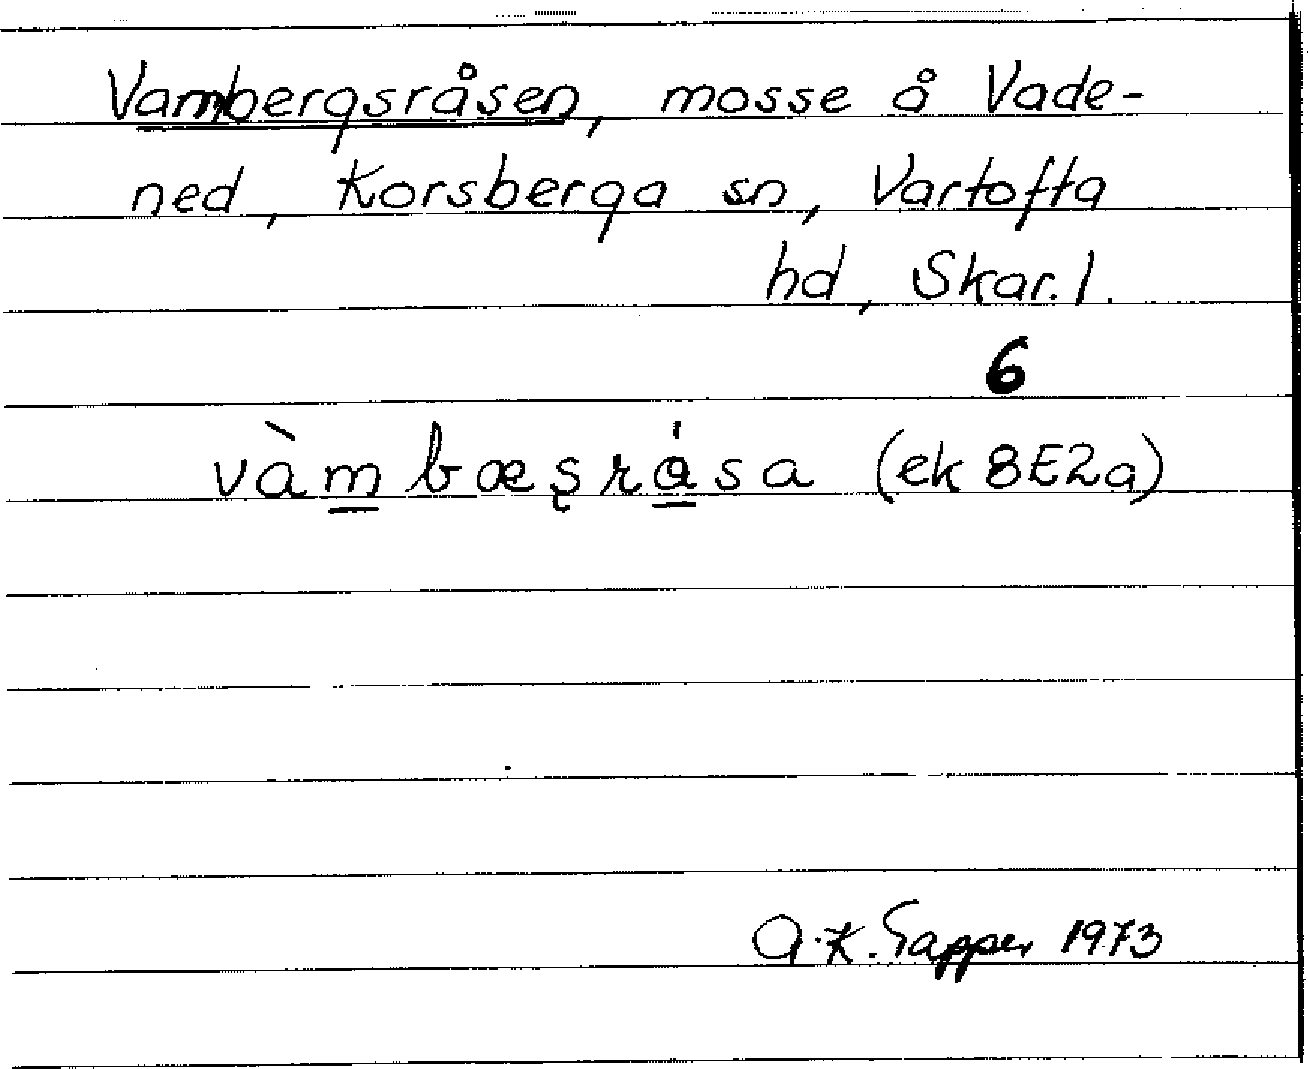 Vambergsråsen, mosse å Vade-
ned, Korsberga sn, Vartofta
hd, Skar. l.
6
vàm bæşråsa (ek 8E2a)
A.K. Sapper 1973